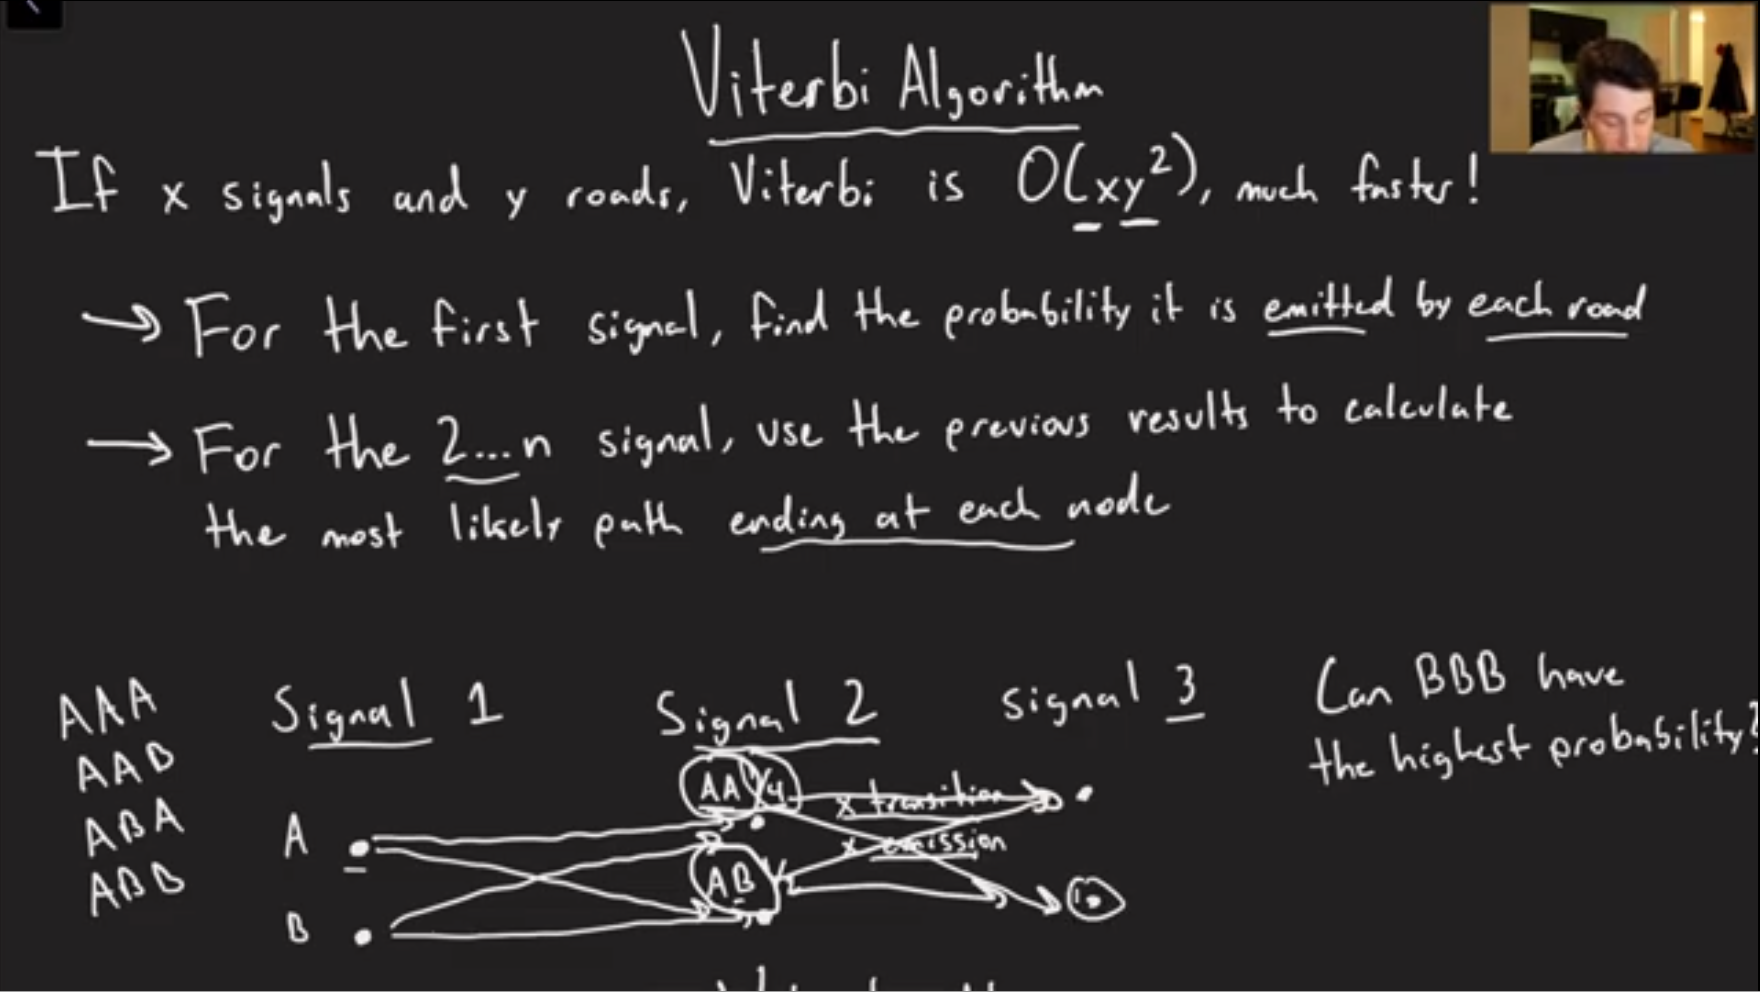 Viterbi Algorithm
If x signals and y roads, Viterbi is O(xy²), much faster!
→ For the first signal, find the probability it is emitted by each road
→ For the 2...n signal, use the previous results to calculate
the most likely path ending at each node
AAA
AAB
ABA
ABB
Signal 1
Signal 2
signal 3
Can BBB have
the highest probability?
A
B
AA
AB
x transition
x emission